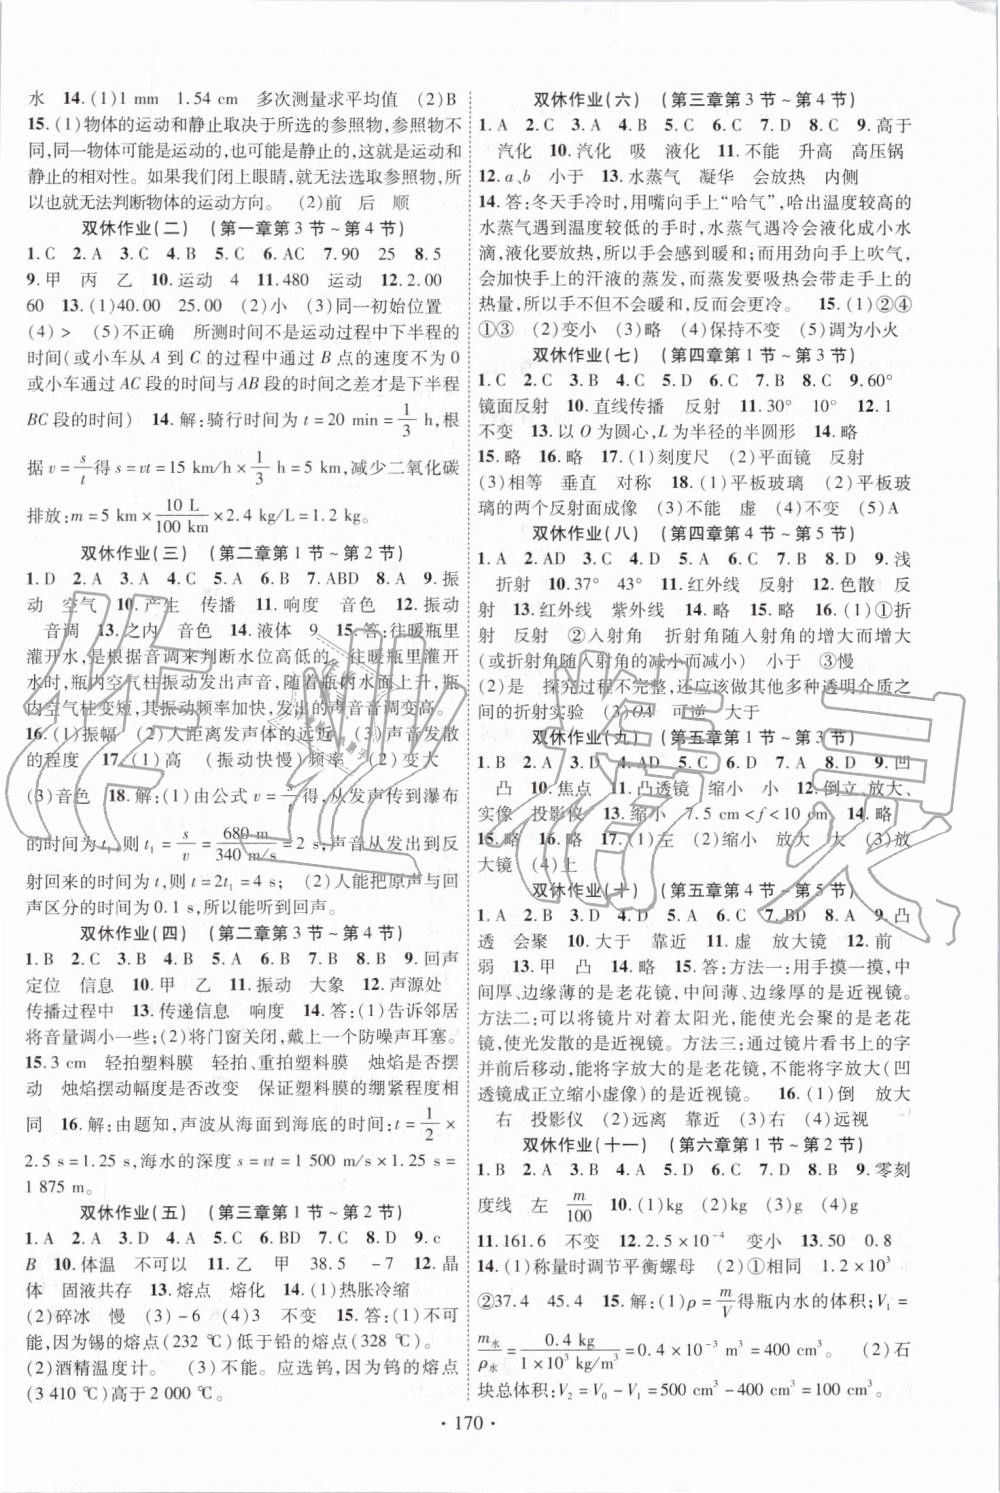 水　14.(1)1 mm　1.54 cm　多次测量求平均值　(2)B
15.(1)物体的运动和静止取决于所选的参照物,参照物不
同,同一物体可能是运动的,也可能是静止的,这是运动和
静止的相对性。如果我们闭上眼睛,就无法选取参照物,所
以也就无法判断物体的运动方向。　(2)前　后　顺
双休作业(二)　(第一章第3节～第4节)
1.C　2.A　3.C　4.B　5.C　6.AC　7.90　25　8.5
9.甲　丙　乙　10.运动　4　11.480　运动　12.2.00
60　13.(1)40.00　25.00　(2)小　(3)同一初始位置
(4)>　(5)不正确　所测时间不是运动过程中下半程的
时间(或小车从 A 到 C 的过程中通过 B 点的速度不为0
或小车通过 AC 段的时间与 AB 段的时间之差才是下半程
BC 段的时间)　14.解:骑行时间为 t=20 min=1/3 h,根
据 v=s/t 得 s=vt=15 km/h×1/3 h=5 km,减少二氧化碳
排放:m=5 km×10 L/100 km×2.4 kg/L=1.2 kg。
双休作业(三)　(第二章第1节～第2节)
1.D　2.A　3.A　4.B　5.B　6.B　7.ABD　8.A　9.振
动　空气　10.产生　传播　11.响度　音色　12.振动
音调　13.之内　音色　14.液体　9　15.答:往暖瓶里
灌开水,是根据音调来判断水位高低的。往暖瓶里灌开
水时,瓶内空气柱振动发出声音。随着瓶里水面上升,瓶
内空气柱变短,其振动频率加快,发出的声音音调变高。
16.(1)振幅　(2)人距离发声体的远近　(3)声音发散
的程度　17.(1)高　(振动快慢)频率　(2)变大
(3)音色　18.解:(1)由公式 v=s/t 得,从发声传到瀑布
的时间为 t₁,则 t₁=s/v=680 m/340 m/s=2 s,声音从发出到反
射回来的时间为 t,则 t=2t₁=4 s;(2)人能把原声与回
声区分的时间为0.1 s,所以能听到回声。
双休作业(四)　(第二章第3节～第4节)
1.B　2.C　3.B　4.D　5.A　6.B　7.B　8.BC　9.回声
定位　信息　10.甲　乙　11.振动　大象　12.声源处
传播过程中　13.传递信息　响度　14.答:(1)告诉邻居
将音量调小一些;(2)将门窗关闭,戴上一个防噪声耳塞。
15.3 cm　轻拍塑料膜　轻拍、重拍塑料膜　烛焰是否摆
动　烛焰摆动幅度是否改变　保证塑料膜的绷紧程度相
同　16.解:由题知,声波从海面到海底的时间:t=1/2×
2.5 s=1.25 s,海水的深度 s=vt=1 500 m/s×1.25 s=
1 875 m。
双休作业(五)　(第三章第1节～第2节)
1.A　2.A　3.D　4.A　5.C　6.BC　7.BD　8.D　9.c
B　10.体温　不可以　11.乙　甲　38.5　-7　12.晶
体　固液共存　13.熔点　熔化　14.(1)热胀冷缩
(2)碎冰　慢　(3)-6　(4)3　不变　15.答:(1)不可
能,因为锡的熔点(232 ℃)低于铅的熔点(328 ℃)。
(2)酒精温度计。　(3)不能。应选钨,因为钨的熔点
(3 410 ℃)高于2 000 ℃。
双休作业(六)　(第三章第3节～第4节)
1.A　2.C　3.C　4.B　5.C　6.C　7.D　8.C　9.高于
汽化　10.汽化　吸　液化　11.不能　升高　高压锅
12.a、b　小于　13.水蒸气　凝华　会放热　内侧
14.答:冬天手冷时,用嘴向手上“哈气”,哈出温度较高的
水蒸气遇到温度较低的手时,水蒸气遇冷会液化成小水
滴,液化要放热,所以手会感到暖和;而用劲向手上吹气,
会加快手上的汗液的蒸发,而蒸发要吸热会带走手上的
热量,所以手不但不会暖和,反而会更冷。　15.(1)②④
①③　(2)变小　(3)略　(4)保持不变　(5)调为小火
双休作业(七)　(第四章第1节～第3节)
1.C　2.C　3.B　4.C　5.D　6.C　7.A　8.AC　9.60°
镜面反射　10.直线传播　反射　11.30°　10°　12.1
不变　13.以 O 为圆心,L 为半径的半圆形　14.略
15.略　16.略　17.(1)刻度尺　(2)平面镜　反射
(3)相等　垂直　对称　18.(1)平板玻璃　(2)平板玻
璃的两个反射面成像　(3)不能　虚　(4)不变　(5)A
双休作业(八)　(第四章第4节～第5节)
1.A　2.AD　3.C　4.D　5.A　6.D　7.B　8.D　9.浅
折射　10.37°　43°　11.红外线　反射　12.色散　反
射　13.红外线　紫外线　14.略　15.略　16.(1)①折
射　变小　②入射角　折射角随入射角的增大而增大
(或折射角随入射角的减小而减小)　小于　③慢
(2)是　探究过程不完整,还应该做其他多种透明介质之
间的折射实验　(3)OA　可逆　大于
双休作业(九)　(第五章第1节～第3节)
1.B　2.D　3.A　4.A　5.C　6.C　7.D　8.AD　9.凹
凸　10.焦点　11.凸透镜　缩小　小　12.倒立、放大、
实像　投影仪　13.缩小　7.5 cm<f<10 cm　14.略
15.略　16.略　17.(1)左　(2)缩小　放大　大　(3)放
大镜　(4)上
双休作业(十)　(第五章第4节～第5节)
1.A　2.C　3.D　4.B　5.A　6.C　7.BD　8.A　9.凸
透　会聚　10.大于　靠近　11.虚　放大镜　12.前
弱　13.甲　凸　14.略　15.答:方法一:用手摸一摸,中
间厚、边缘薄的是老花镜,中间薄、边缘厚的是近视镜。
方法二:可以将镜片对着太阳光,能使光会聚的是老花
镜,使光发散的是近视镜。方法三:通过镜片看书上的字
并前后移动,能将字放大的是老花镜,不能将字放大(凹
透镜成正立缩小虚像)的是近视镜。　16.(1)倒　放大
右　投影仪　(2)远离　靠近　(3)右　(4)远视
双休作业(十一)　(第六章第1节～第2节)
1.B　2.A　3.B　4.D　5.A　6.C　7.A　8.AC　9.零刻
度线　左　m/100　10.(1)kg　(2)kg　(3)g　(4)g
11.161.6　不变　12.2.5×10⁻⁴　变小　13.50　0.8
14.(1)称量时调节平衡螺母　(2)①相同　1.2×10³
②37.4　45.4　15.解:(1)ρ=m/V得瓶内水的体积:V₁=
m水/ρ水=0.4 kg/1×10³ kg/m³=0.4×10⁻³ m³=400 cm³。　(2)石
块总体积:V₂=V₀-V₁=500 cm³-400 cm³=100 cm³。
· 170 ·
作业精灵